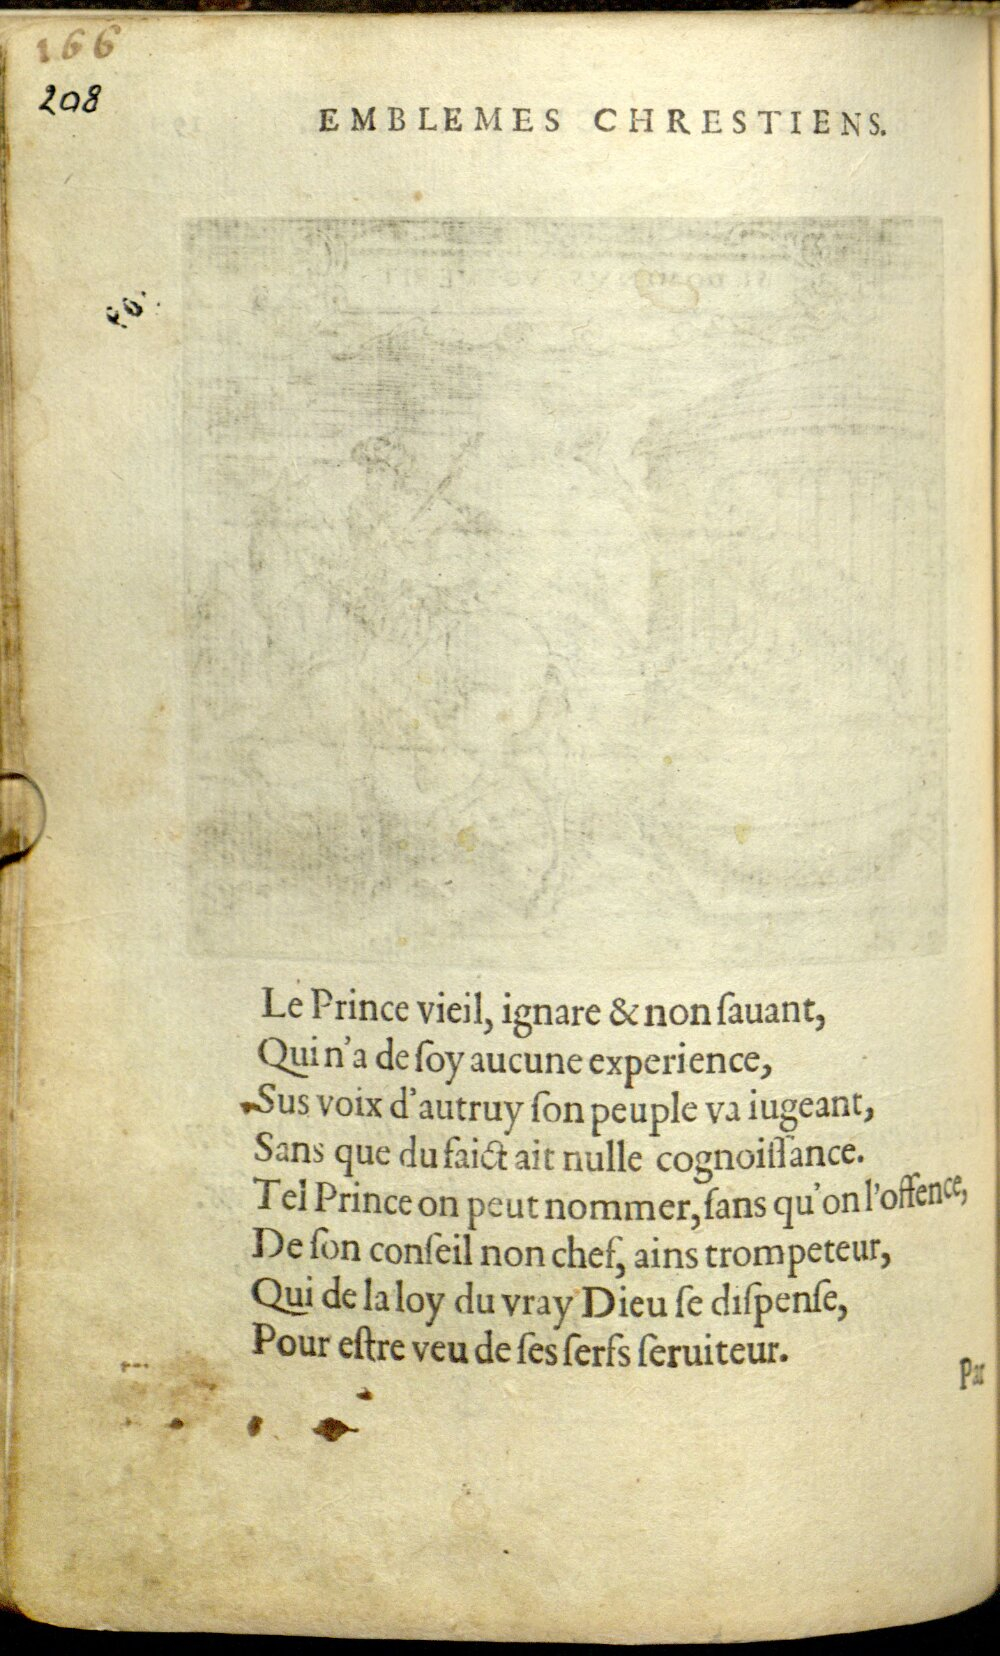 166
208
EMBLEMES CHRESTIENS.
Le Prince vieil, ignare & non ſauant,
Qui n'a de ſoy aucune experience,
Sus voix d'autruy ſon peuple va iugeant,
Sans que du faict ait nulle cognoiſſance.
Tel Prince on peut nommer, ſans qu'on l'offence,
De ſon conſeil non chef, ains trompeteur,
Qui de la loy du vray Dieu ſe diſpenſe,
Pour eſtre veu de ſes ſerfs ſeruiteur.
Par